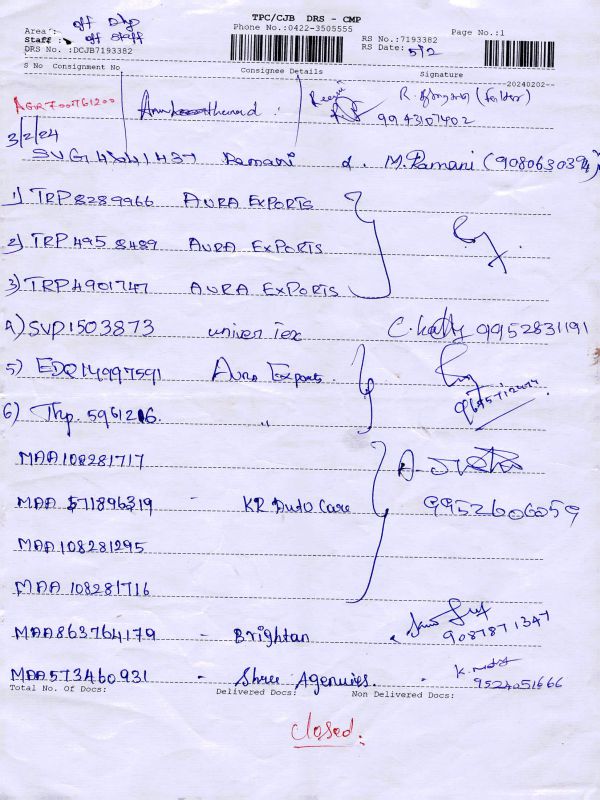 TPC/CJB DRS - CMP
Phone No.:0422-3505555
Area : off
Staff : off Staff
DRS No. :DCJB7193382
RS No.:7193382
RS Date: 5/2
Page No.:1
S No Consignment No Consignee Details Signature
20240202
AGR700761200 R. (Father)
9943107402
3/2/24
Ramani d. M. Ramani (9080630394)
1) TRP 8289966 AURA EXPORTS
2) TRP 4958489 AURA EXPORTS
3) TRP 4901747 AURA EXPORTS
4) SVP1503873 univer Tex C. 9952831191
5) EDQ14997591 Aura Exports
6) Thp. 5961216 "
MAA108281717
MAA 571896319 - KR Auto Care 9952606059
MAA 108281295
MAA 108281716
MAA863764179 - Brightan 9087871347
MAA573460931 - Shree Agenuires. 9524051666
Total No. Of Docs: Delivered Docs: Non Delivered Docs:
closed.